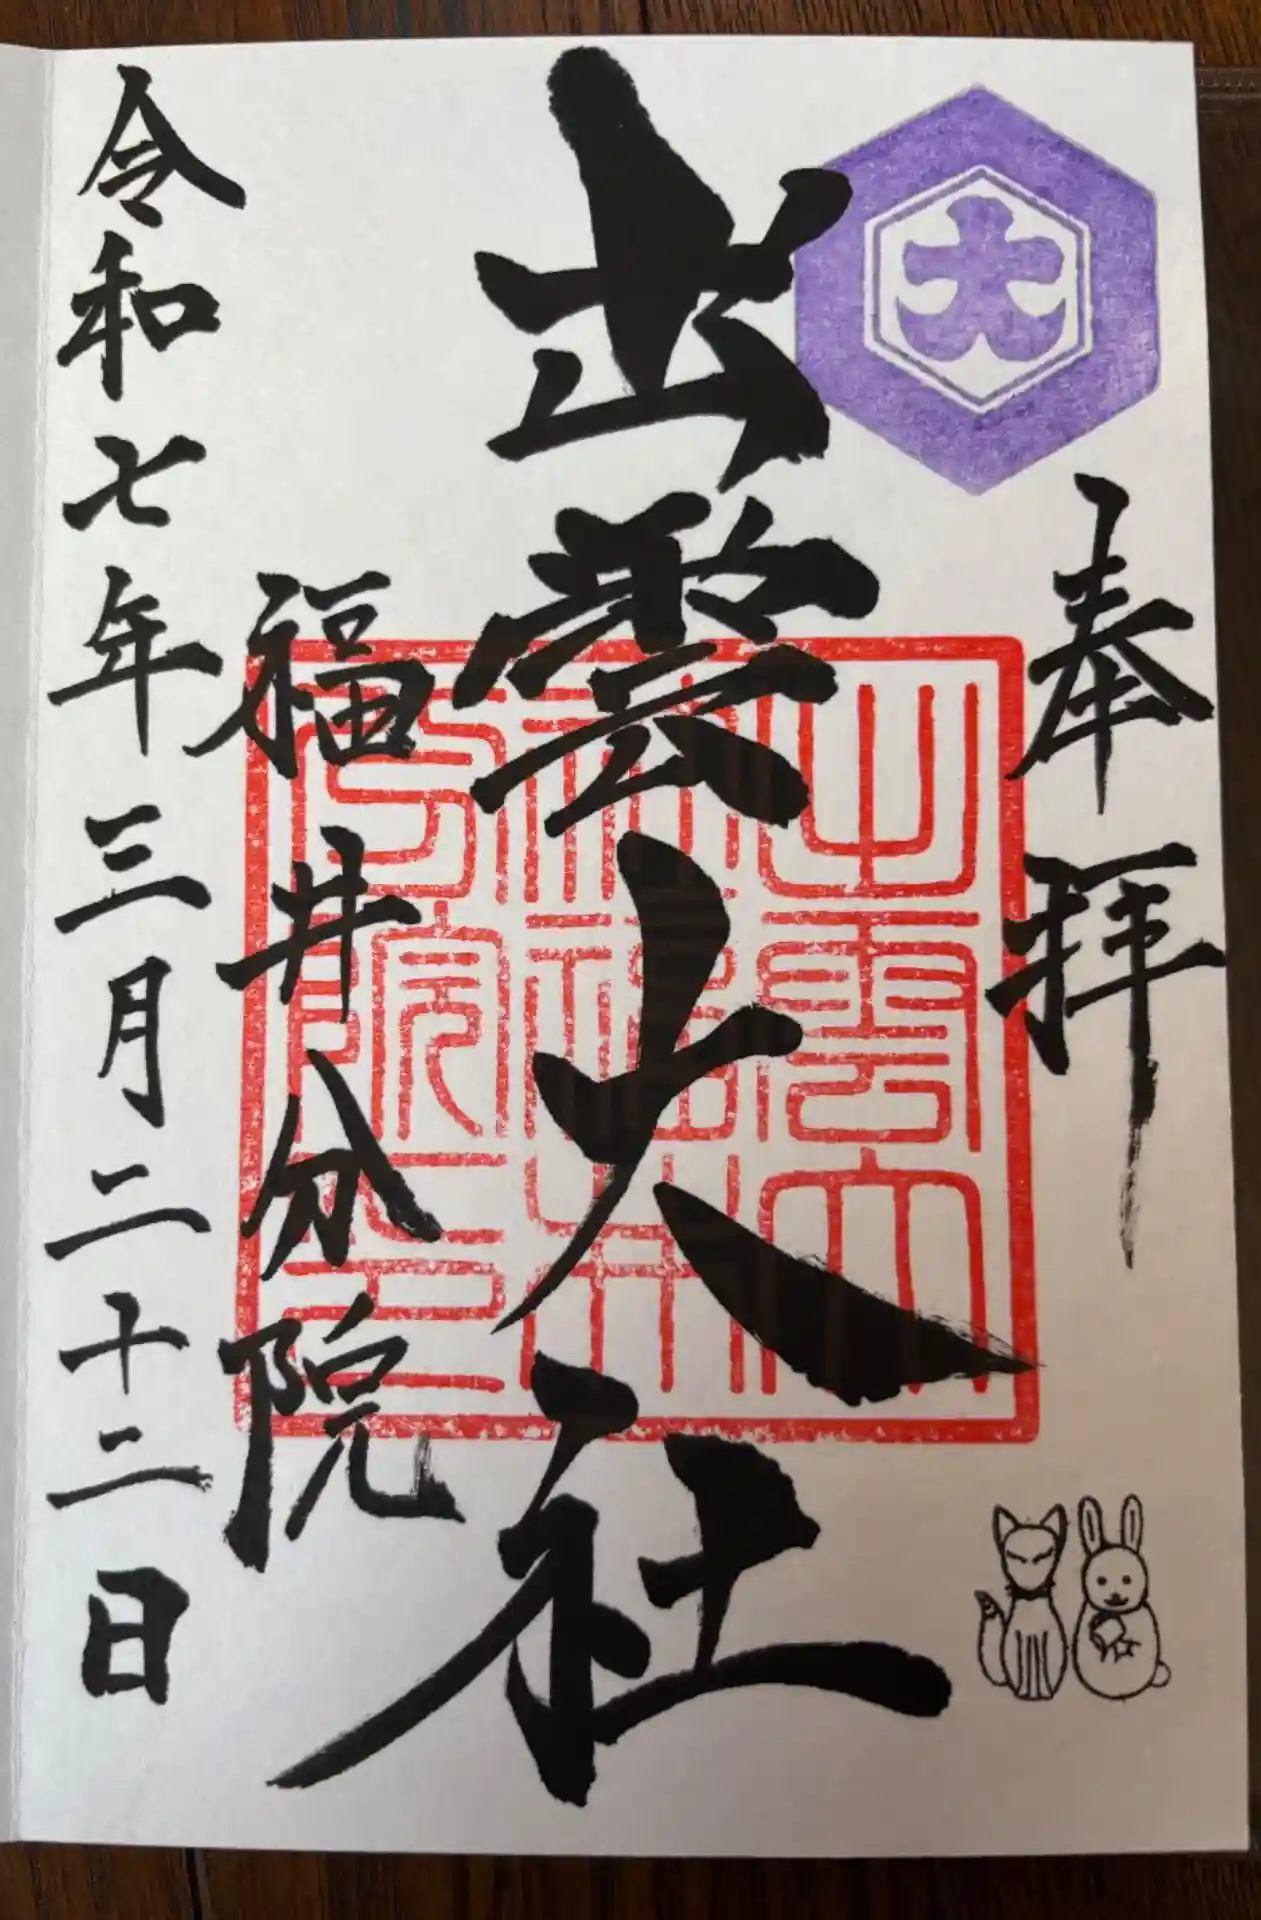 大
奉拝
出雲大社
福井分院
令和七年三月二十二日
出雲大
社福井
分院之印